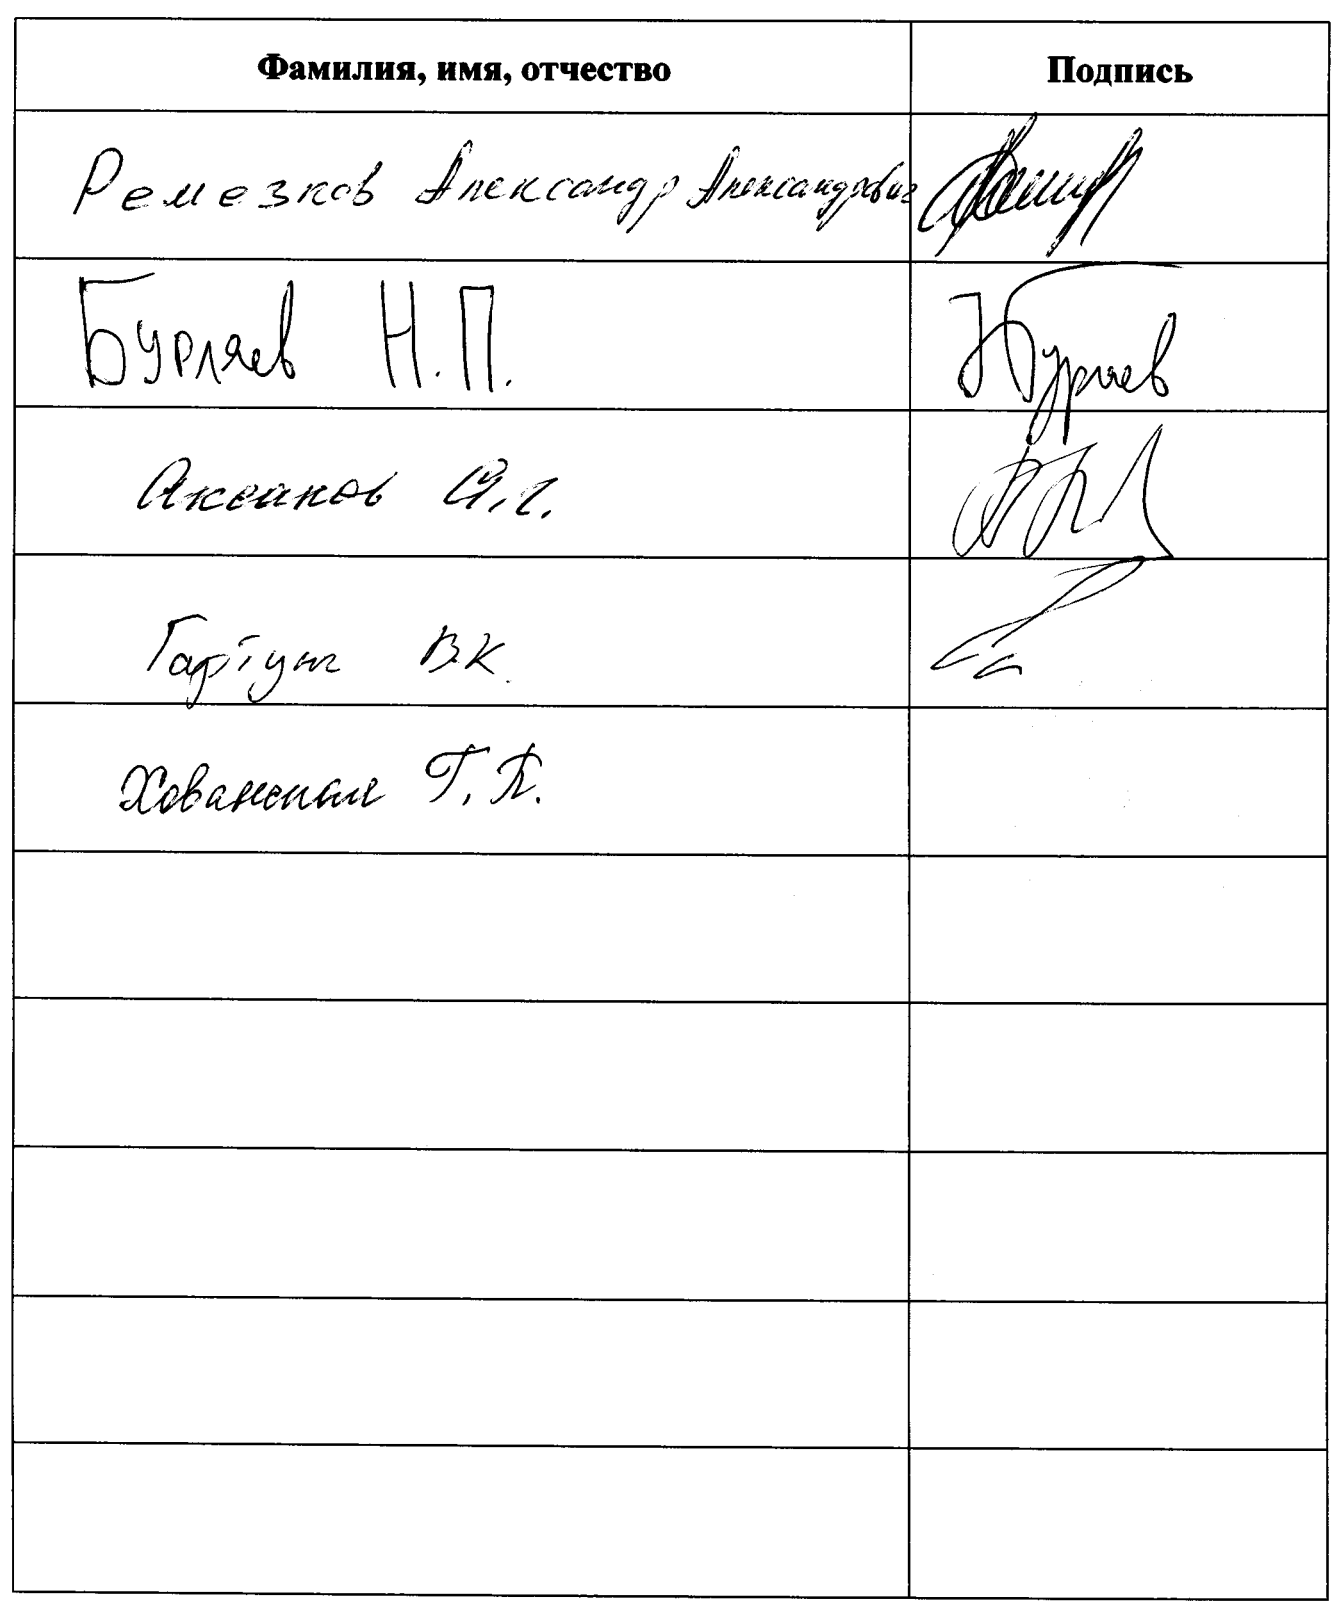 Фамилия, имя, отчество Подпись
Ремезков Александр Александрович
Бурляев Н.П. НБурляев
Аксаков
Гартунг В.К.
Хованская Г.П.